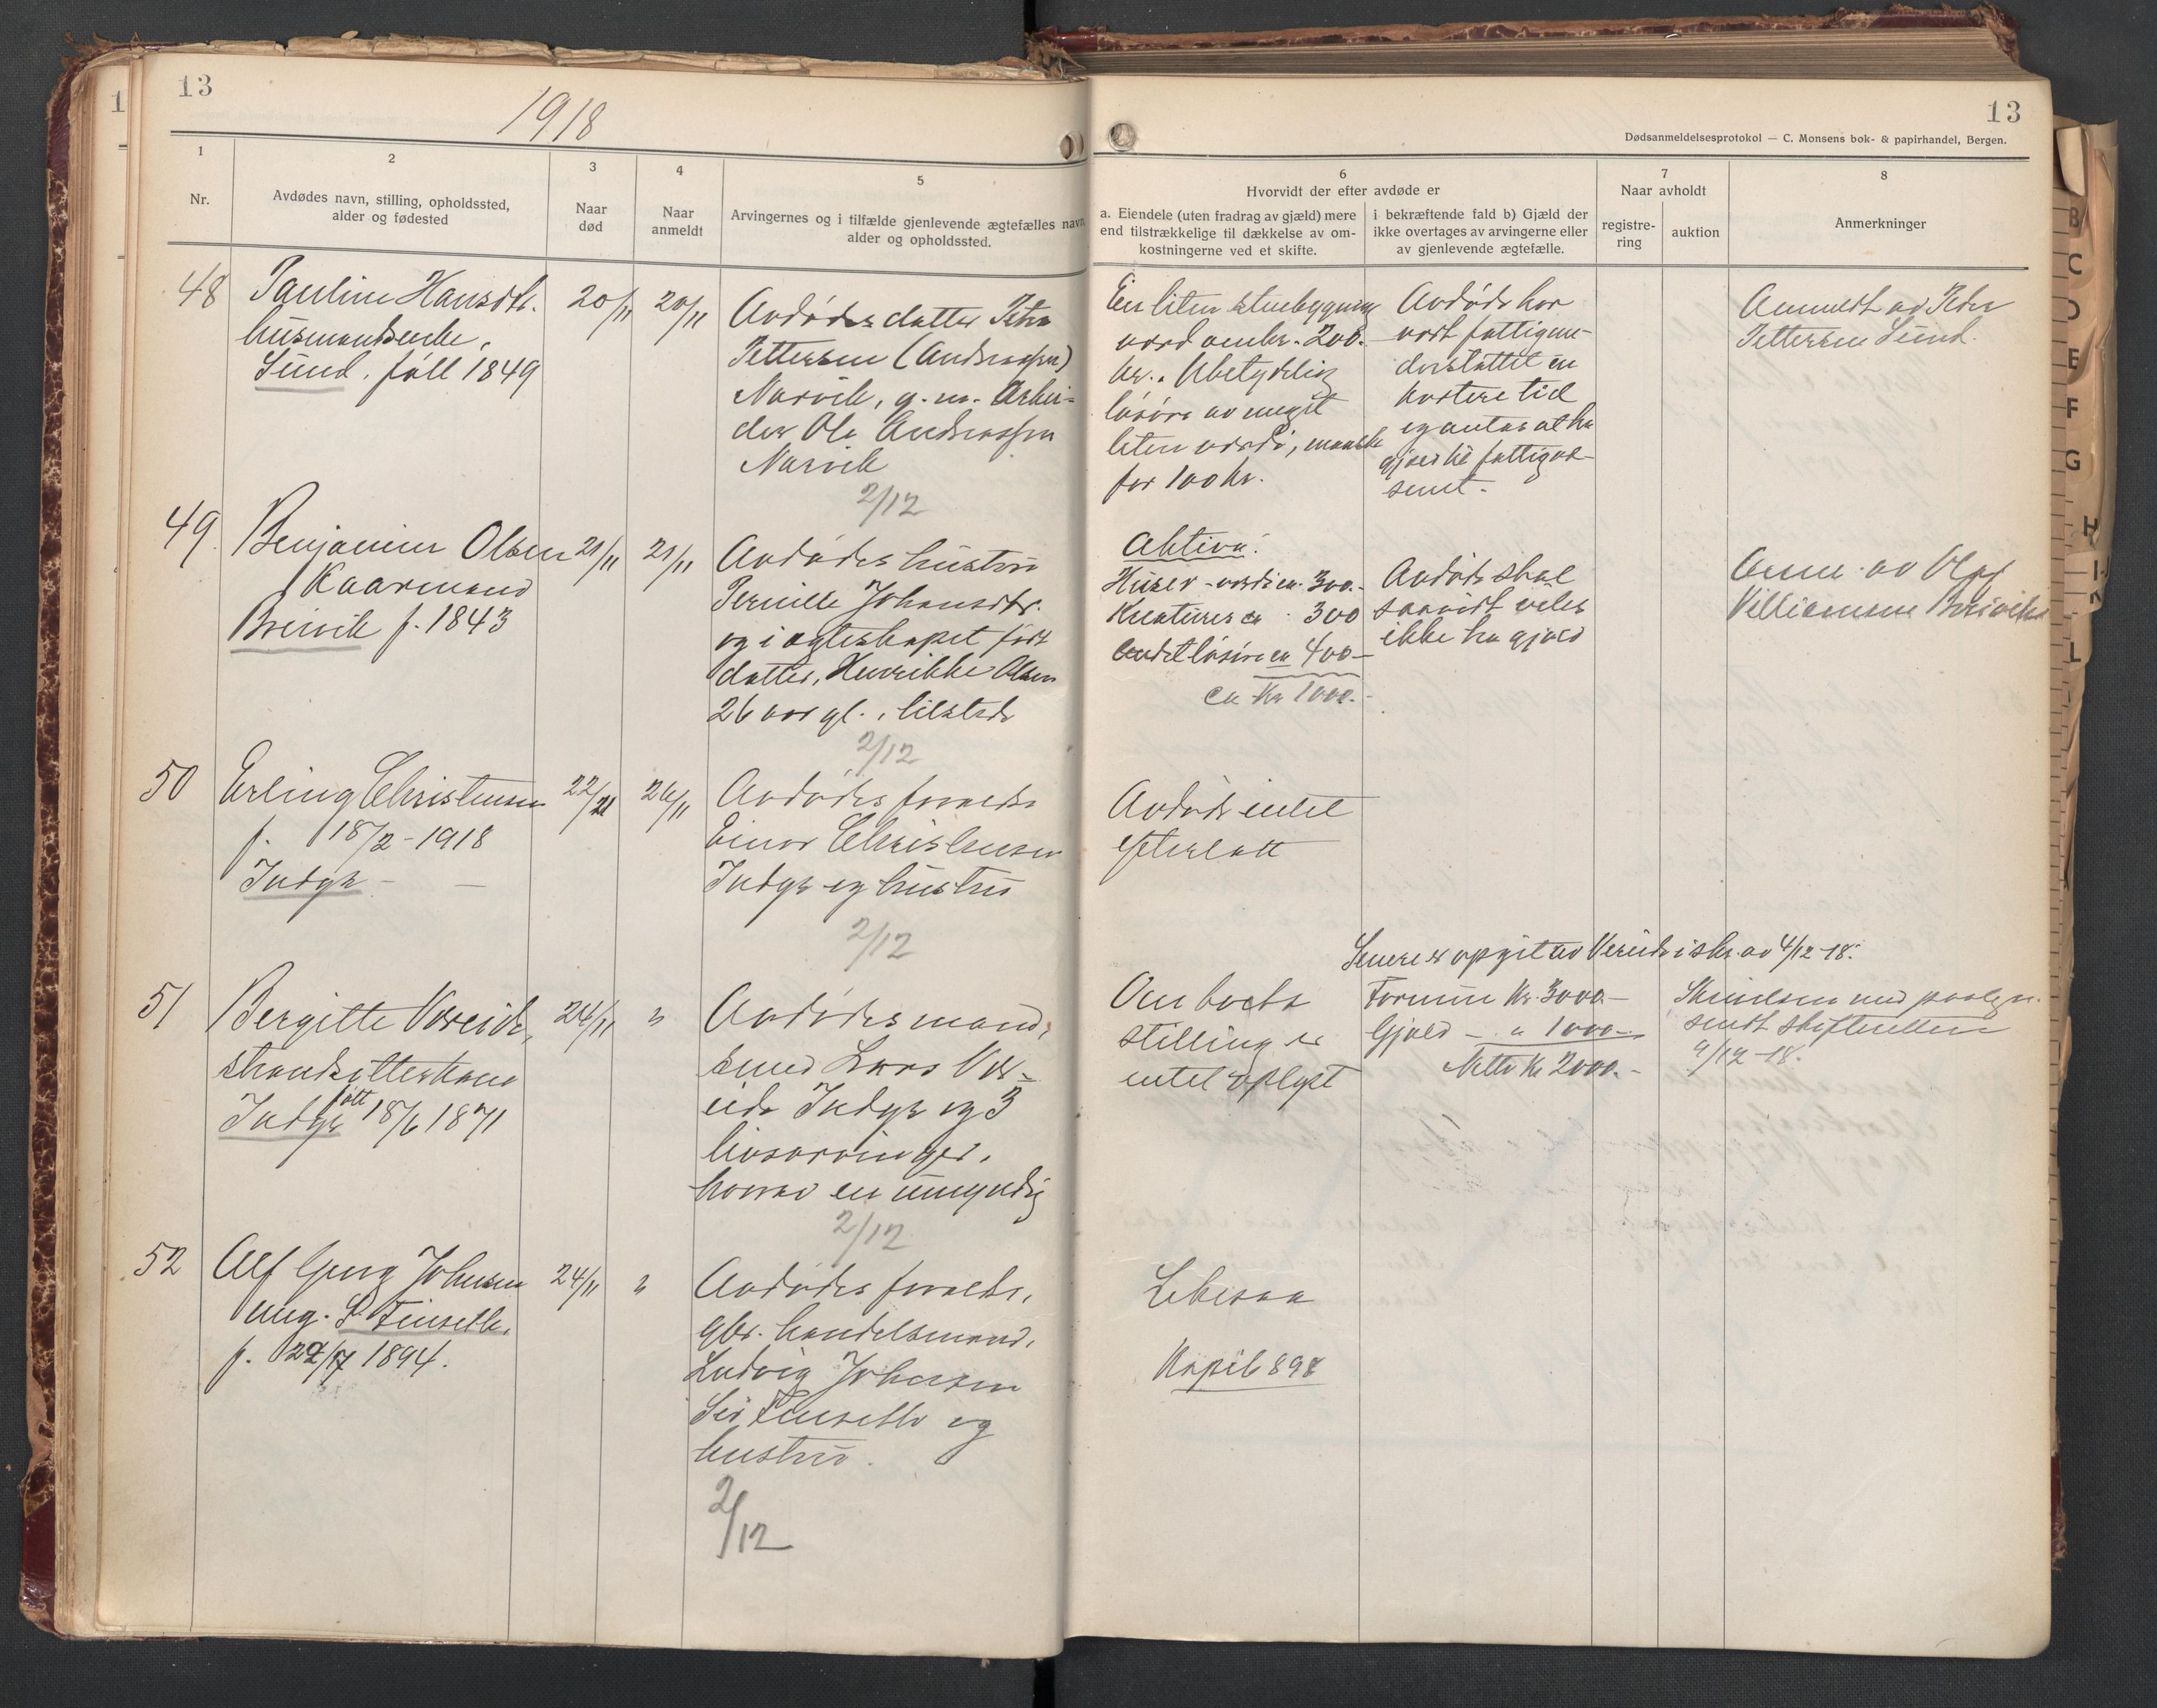 13
1918
1
Nr.
2
Avdødes navn, stilling, opholdssted,
alder og fødested
3
Naar
død
4
Naar
anmeldt
5
Arvingernes og i tilfælde gjenlevende ægtefælles navn,
alder og opholdssted.
48
Pauline Hansdtr.
husmandsenke,
Sund. født 1849
20/11
20/11
Avdødes datter Petra
Pettersen (Andreassen)
Narvik, g. m. Arbei-
der Ole Andreassen
Narvik
2/12
49.
Benjamin Olsen
Kaarmand
Breivik f. 1843
21/11
21/11
Avdødes hustru
Pernille Johansdtr.
og i ægteskapet født
datter, Henrikke Olsen
26 aar gl., tilstede
2/12
50
Erling Christensen
f. 18/2 - 1918
Indgr -
22/11
26/11
Avdødes forældre
Einar Christensen
Indgr og hustru
2/12
51
Bergitte Vereide,
strandsitterkone
Indgr født 18/6 1871
24/11
"
Avdødes mand,
smed Lars Ver-
eide Indgr og 3
livsarvinger,
hvorav en umyndig
2/12
52
Alf Georg Johnsen
ung. S. Finseth.
f. 1894.
24/11
"
Avdødes forældre,
gbr. handelsmand,
Ludvig Johnsen
Finseth og
hustru.
2/12
13
Dødsanmeldelsesprotokol — C. Monsens bok- & papirhandel, Bergen.
6
Hvorvidt der efter avdøde er
a. Eiendele (uten fradrag av gjæld) mere
end tilstrækkelige til dækkelse av om-
kostningerne ved et skifte.
i bekræftende fald b) Gjæld der
ikke overtages av arvingerne eller
av gjenlevende ægtefælle.
7
Naar avholdt
registre-
ring
auktion
8
Anmerkninger
En liten stuebygning
værd omkr. 200.-
kr. Ubetydelig
løsøre av meget
liten værdi, maaske
for 100 kr.
Avdøde har
vært fattigun-
derstøttet en
kortere tid
og antas at ha
gjæld til fattigvæ-
senet.
Anmeldt av Peder
Pettersen Sund.
Aktiva:
Huser - værdi ca. 300.-
Kreaturer ca. 300
Andet løsøre ca 400 -
ca Kr 1000.-
Avdøde skal
saavidt vides
ikke ha gjæld
Anm. av Olaf
Villiamsen Breivik
Avdøde intet
efterlatt
Senere er opgit av Vereide i skr. av 4/12-18:
Om boets
stilling er
intet oplyst
Formue Kr. 3000.-
Gjæld - " 1000.-
Netto Kr 2000.-
Skrivelsen med paategn.
sendt skifteretten
9/12-18.